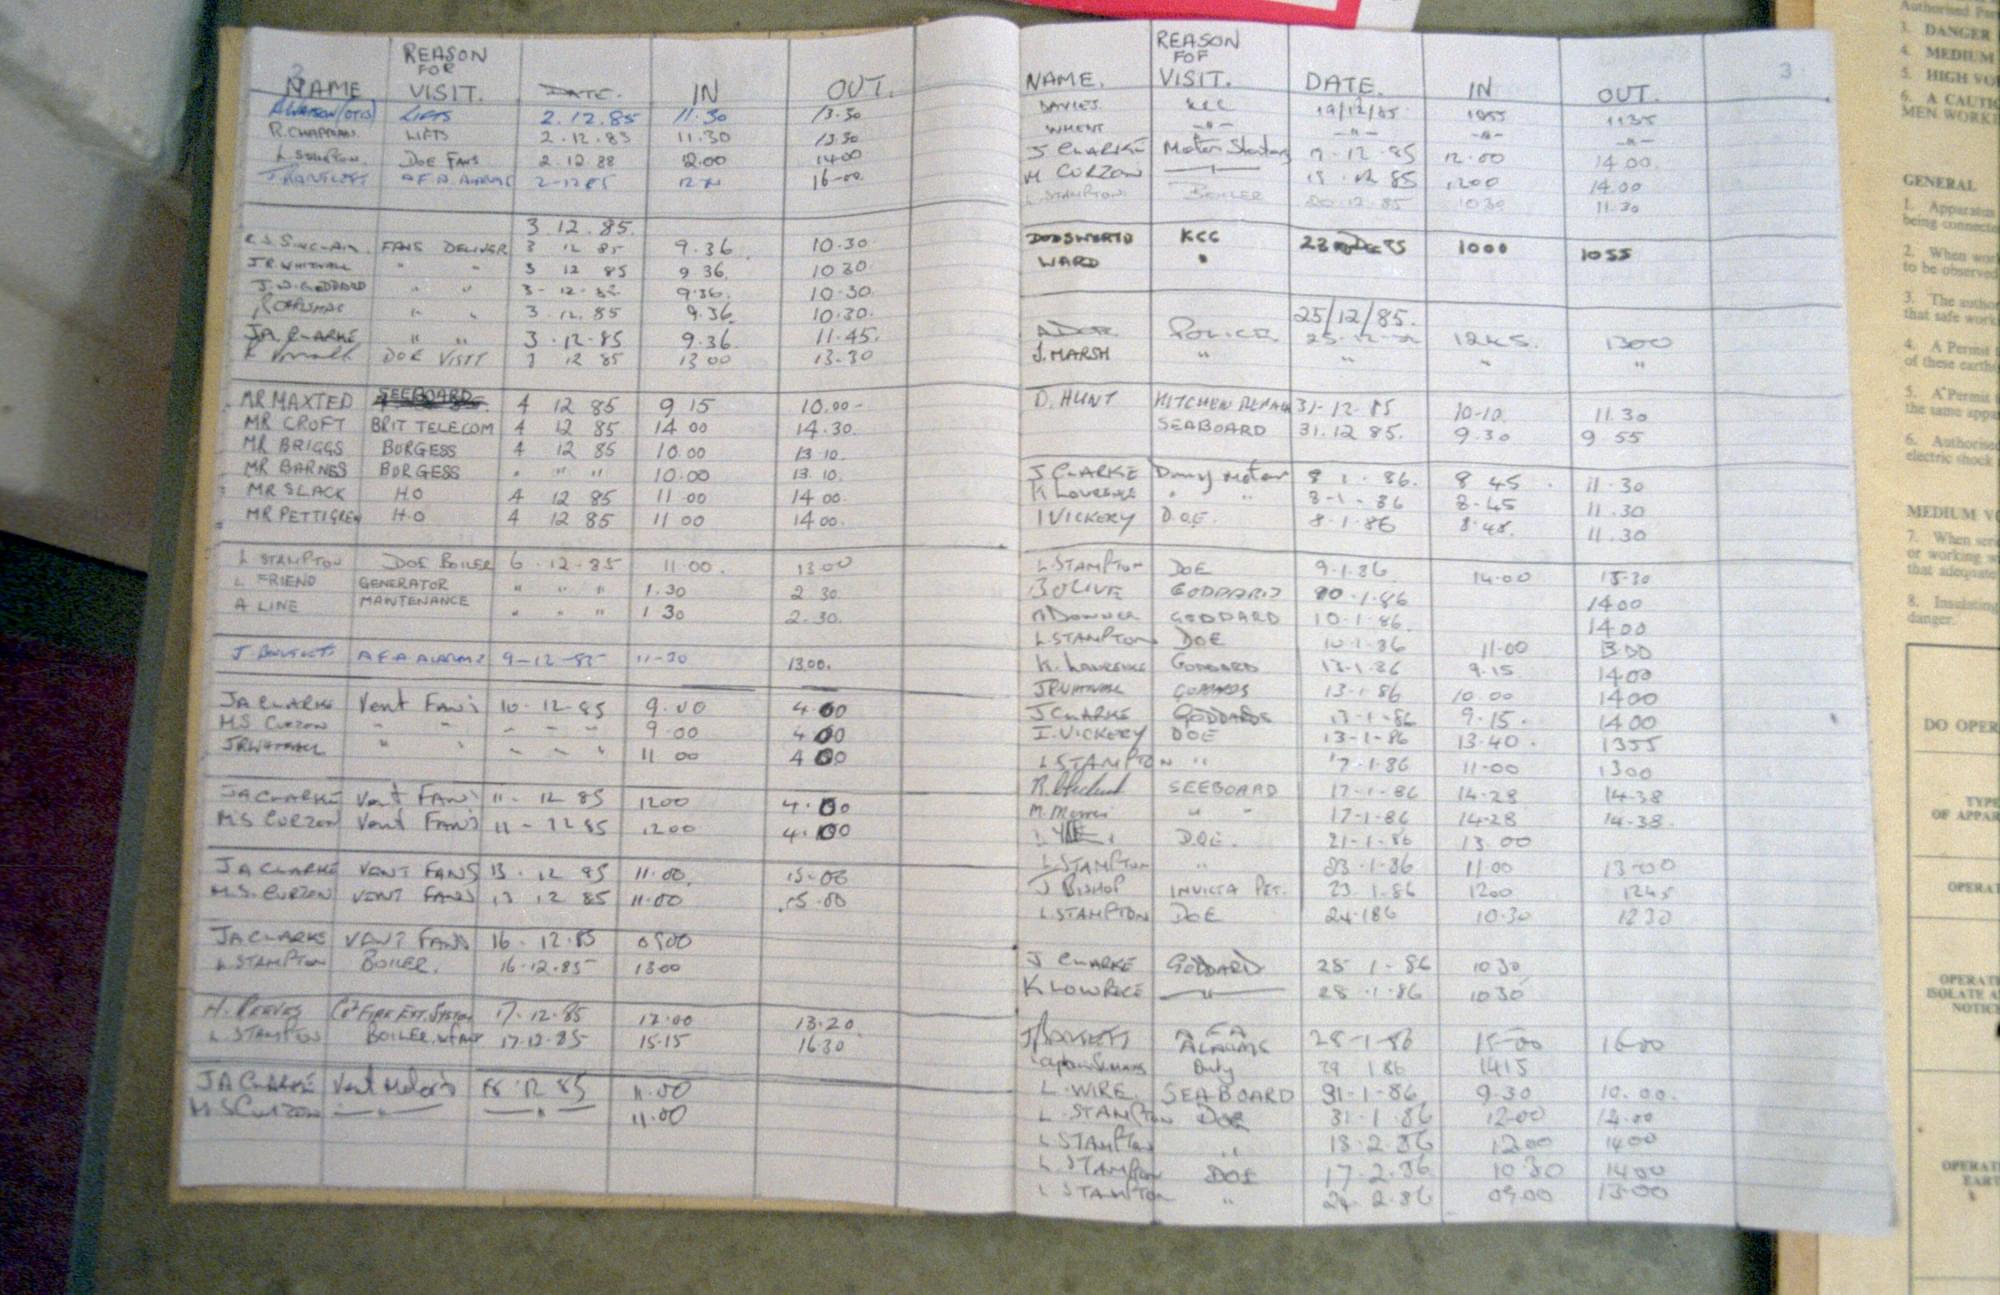 2
REASON
FOR
NAME VISIT. DATE. IN OUT.
A WATSON (OTIS) LIFTS 2.12.85 11.30 13.30
R. CHAPMAN. LIFTS 2.12.85 11.30 13.30
L STAMPTON. DOE FANS 2.12.88 12.00 14.00
A.F.A. ALARMS 2-12-85 16-00.
3.12.85.
R.S. SINCLAIR. FANS DELIVER 3 12 85 9.36 10.30
J.R. WHITNALL " " 3 12 85 9 36. 10 30.
J.D. GODDARD " " 3-12.85 9.36. 10.30.
" " 3.12.85 9.36. 10.30.
JA CLARKE " " 3.12.85 9.36. 11.45.
DOE VISIT 12 85 13 00 13.30
MR MAXTED SEEBOARD 4 12 85 9 15 10.00-
MR CROFT BRIT TELECOM 4 12 85 14 00 14.30.
MR BRIGGS BURGESS 4 12 85 10.00 13 10.
MR BARNES BURGESS " " " 10.00 13.10.
MR SLACK H.O 4 12 85 11 00 14 00.
MR PETTIGREW H.O 4 12 85 11 00 14 00.
L STAMPTON DOE BOILER 6.12.85 11.00. 13.00
L FRIEND GENERATOR " " " 1.30 2 30
A LINE MAINTENANCE " " " 1 30 2.30.
J A.F.A ALARMS 9-12-85 11-30 13.00.
JA CLARKE Vent Fans 10-12-85 9.00 4.00
M.S CURZON " " - - - 9.00 4.00
J.R. WHITNALL " " - - " 11 00 4 00
JA CLARKE Vent FANS 11-12 85 12 00 4.00
M.S CURZON Vent FANS 11-12 85 12 00 4.00
JA CLARKE VENT FANS 13.12 85 11.00. 15.00
M.S. CURZON VENT FANS 13 12 85 11.00 15.00
JA CLARKE VENT FANS 16.12.85 0900
L STAMPTON BOILER. 16.12.85 1300
H. REEVES CO² FIRE EXT. SYSTEM 17.12.85 13.20
L. STAMPTON BOILER. 17.12.85 15.15 16.30
JA CLARKE Vent Motors 18.12 85 11.00
M S CURZON —"— —"— 11.00
3
REASON
FOR
NAME. VISIT. DATE. IN OUT.
DAVIES. KCC 19/12/85 1055 1135
WHENT —"— —"— —"— —"—
J CLARKE Motor Starters 12.85 12.00 14.00.
M CURZON —"— 12 85 1200 14.00
L. STAMPTON BOILER 20.12.85 10 30 11.30
DODSWORTH KCC 23 DEC 85 1000 1055
WARD "
25/12/85.
POLICE 25.12. 1245. 1300
J. MARSH " " " "
D. HUNT KITCHEN REPAIR 31-12-85 10-10. 11.30
SEABOARD 31.12 85. 9.30 9 55
J CLARKE Motor 8 1.86. 8 45. 11.30
K LOWRENCE " " 8-1-86 8-45 11.30
I VICKERY D.O.E. 8.1.86 8.45. 11.30
L. STAMPTON DOE 9.1.86. 14.00 15.30
B OLIVE GODDARD 10.1.86 1400
GODDARD 10.1.86. 1400
L. STAMPTON DOE 10.1.86 11.00 1300
K. LAWRENCE GODDARD 13-1.86 9.15. 1400
J.R. WHITNALL GODDARDS 13.1 86 10.00 1400
J CLARKE GODDARDS 13-1-86 9-15. 1400
I. VICKERY DOE 13-1-86 13.40. 1355
L STAMPTON " 17.1.86 11-00 1300
SEEBOARD 17-1-86 14-28 14-38
M. " " 17-1-86 14-28 14-38.
D.O.E. 21-1-86 13.00
L STAMPTON " 23.1.86 11.00 13.00
J BISHOP INVICTA PET. 23.1-86 1200 1245
L. STAMPTON DOE 24.1 86 10.30 12 30
J CLARKE GODDARD 28 1-86 10 30
K LOWRENCE —"— 28.1.86 10 30
J A F A ALARMS 28-1-86 15-00 16-00
Duty 29 1 86 1415
L. WIRE. SEABOARD 31-1-86 9.30 10.00.
L. STAMPTON DOE 31-1 86 12.00
L STAMPTON " 13.2.86 12.00 1400
L STAMPTON DOE 17.2.86 10.30 14.00
L STAMPTON " 24.2.86 09.00 13.00
Authorised
3. DANGER
4. MEDIUM
5. HIGH
6. A
MEN
GENERAL
1. Apparatus
being
2. When
to be observed
3. The
that safe
4. A Permit
of these
5. A Permit
the same
6.
electric shock
MEDIUM
7. When
or working
that adequate
8. Insulating
danger.
DO
TYPE
OF